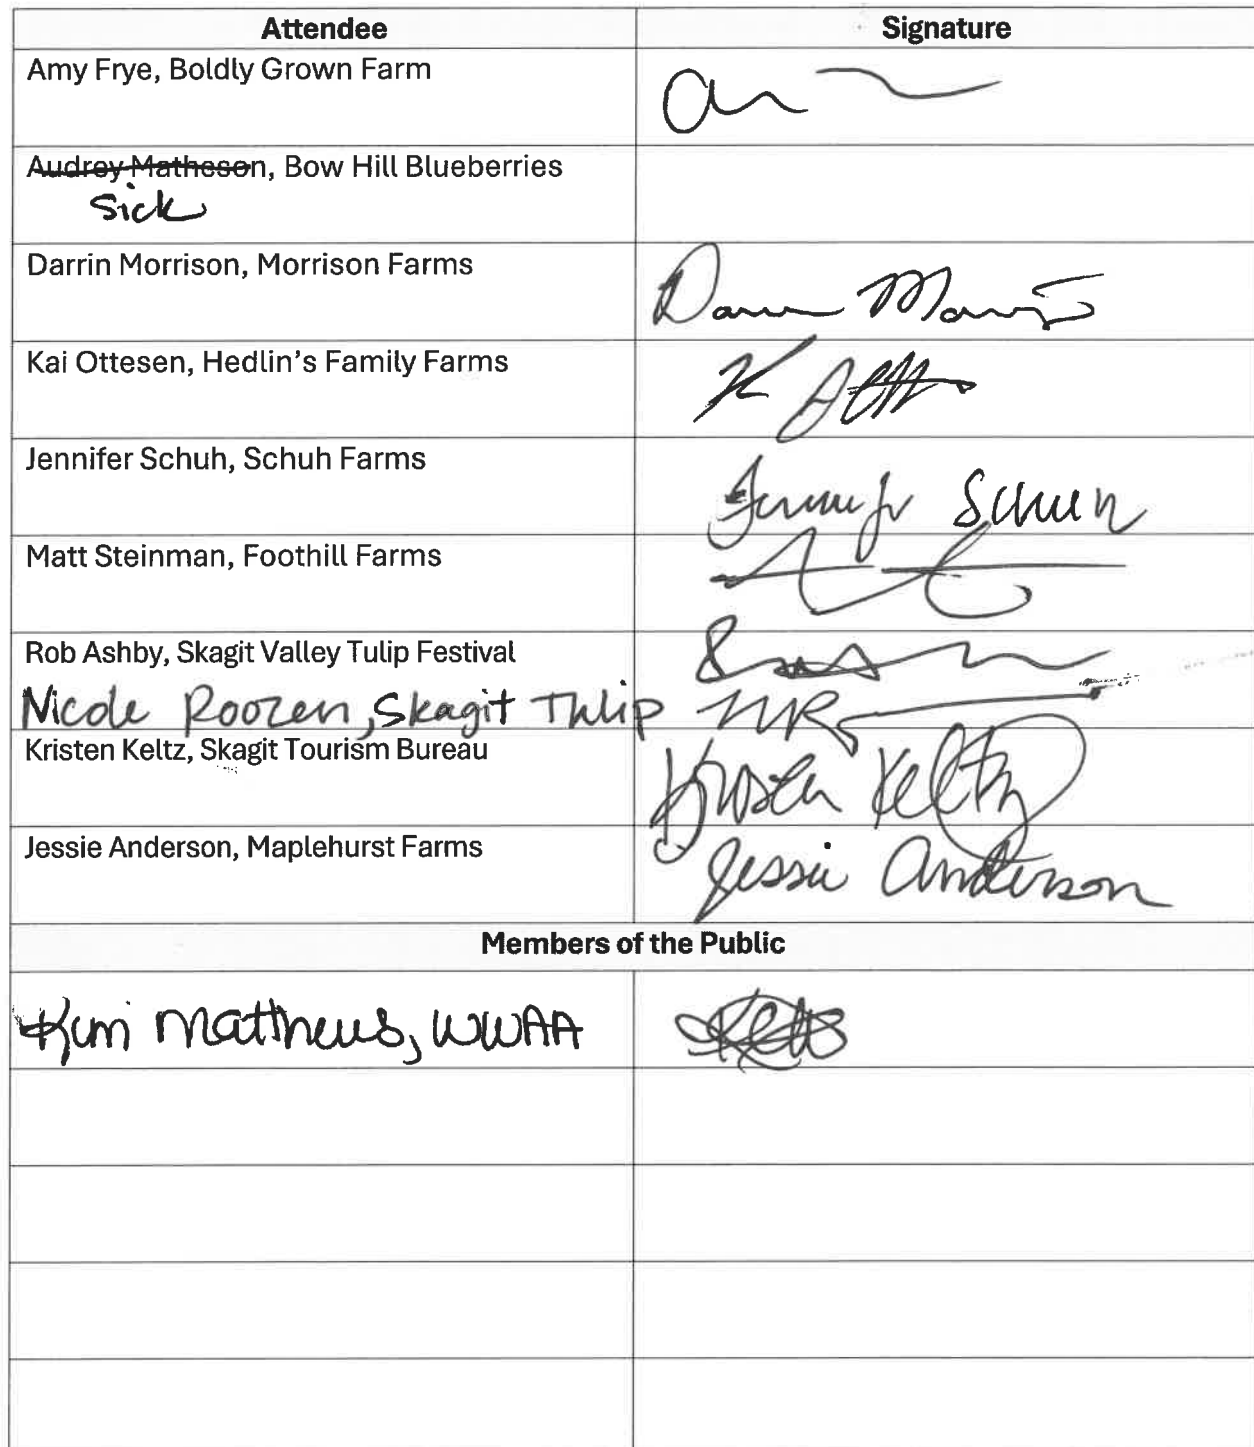 Attendee Signature
Amy Frye, Boldly Grown Farm
Audrey Matheson, Bow Hill Blueberries
Sick
Darrin Morrison, Morrison Farms
Kai Ottesen, Hedlin's Family Farms
Jennifer Schuh, Schuh Farms Jennifer Schuh
Matt Steinman, Foothill Farms
Rob Ashby, Skagit Valley Tulip Festival
Nicole Roozen, Skagit Tulip NR
Kristen Keltz, Skagit Tourism Bureau Kristen Keltz
Jessie Anderson, Maplehurst Farms Jessie Anderson
Members of the Public
Kim Matthews, WWAA